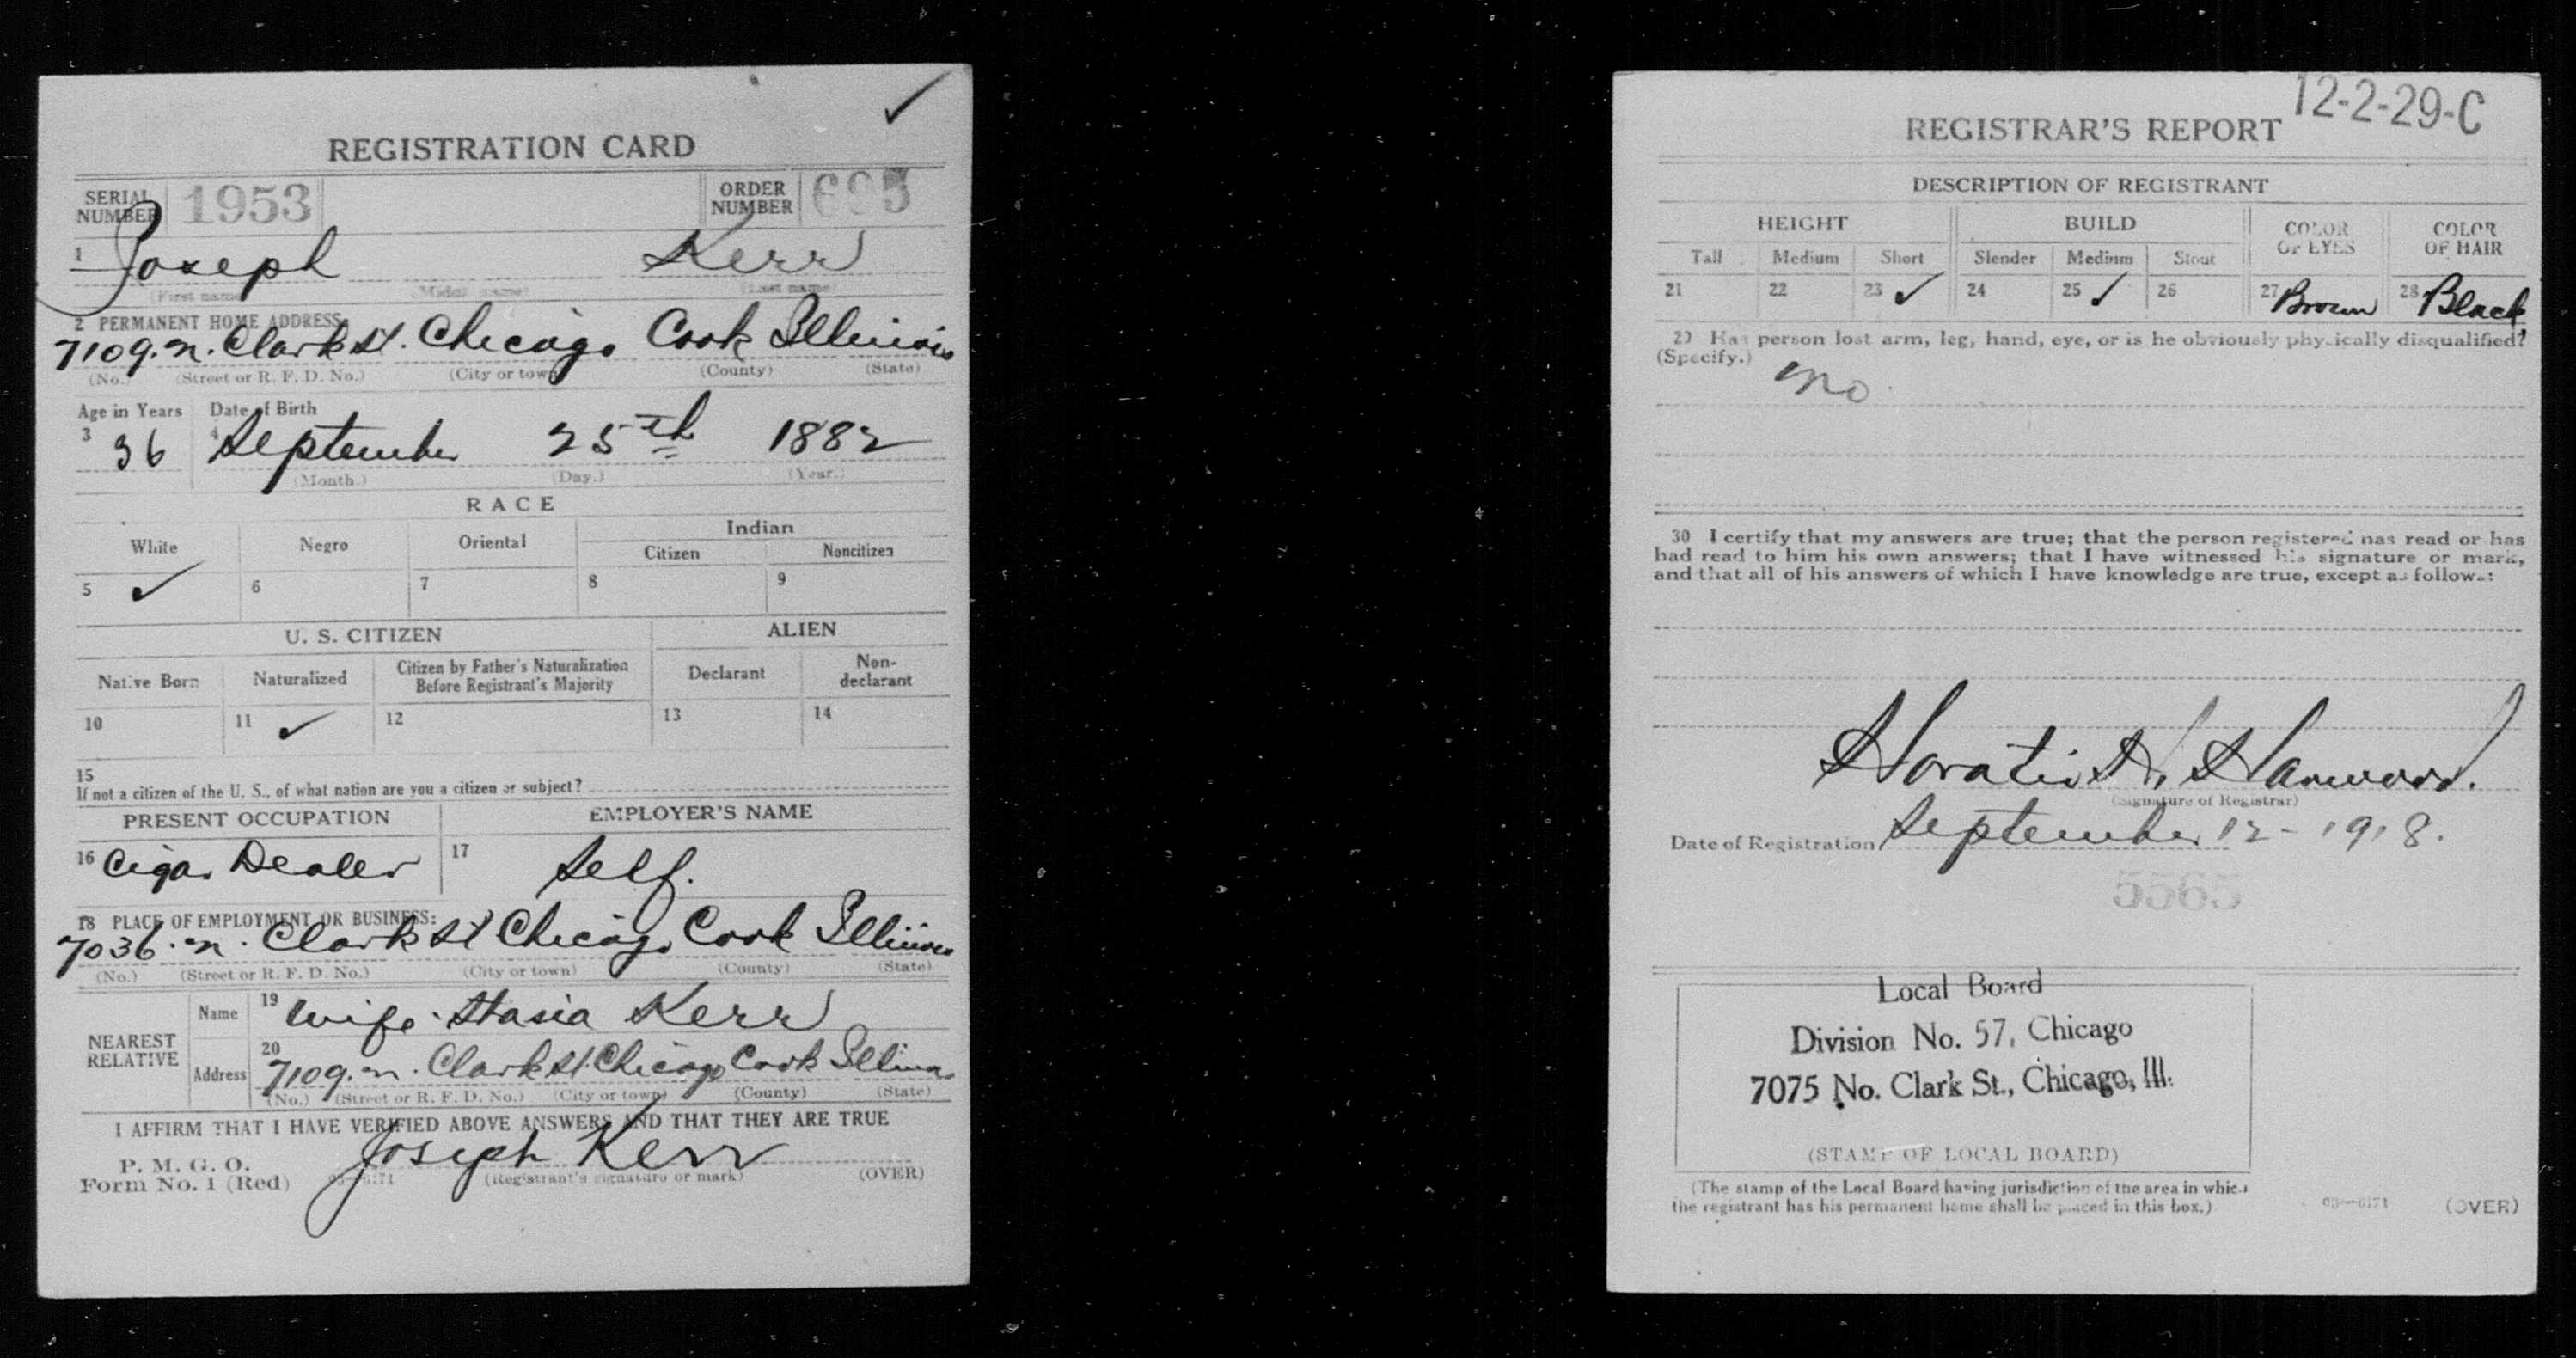 REGISTRATION CARD
SERIAL NUMBER 1953 ORDER NUMBER
1 Joseph Kerr
(First name) (Middle name) (Last name)
2 PERMANENT HOME ADDRESS:
7109. N. Clark St. Chicago Cook Illinois
(No.) (Street or R. F. D. No.) (City or town) (County) (State)
Age in Years Date of Birth
3 36 4 September 25th 1882
(Month.) (Day.) (Year.)
RACE
White Negro Oriental Indian
Citizen Noncitizen
5 ✓ 6 7 8 9
U. S. CITIZEN ALIEN
Native Born Naturalized Citizen by Father's Naturalization Before Registrant's Majority Declarant Non-declarant
10 11 ✓ 12 13 14
15
If not a citizen of the U. S., of what nation are you a citizen or subject?
PRESENT OCCUPATION EMPLOYER'S NAME
16 Cigar Dealer 17 Self.
18 PLACE OF EMPLOYMENT OR BUSINESS:
7036. N. Clark St Chicago Cook Illinois
(No.) (Street or R. F. D. No.) (City or town) (County) (State)
NEAREST RELATIVE
Name 19 Wife. Stasia Kerr
Address 20 7109. N. Clark St. Chicago Cook Illinois
(No.) (Street or R. F. D. No.) (City or town) (County) (State)
I AFFIRM THAT I HAVE VERIFIED ABOVE ANSWERS AND THAT THEY ARE TRUE
P. M. G. O.
Form No. 1 (Red) 03—6171 Joseph Kerr
(Registrant's signature or mark) (OVER)
12-2-29-C
REGISTRAR'S REPORT
DESCRIPTION OF REGISTRANT
HEIGHT BUILD COLOR OF EYES COLOR OF HAIR
Tall Medium Short Slender Medium Stout
21 22 23 ✓ 24 25 ✓ 26 27 Brown 28 Black
29 Has person lost arm, leg, hand, eye, or is he obviously physically disqualified?
(Specify.) no.
30 I certify that my answers are true; that the person registered has read or has
had read to him his own answers; that I have witnessed his signature or mark,
and that all of his answers of which I have knowledge are true, except as follows:
Horatio H. Harwood.
(Signature of Registrar)
Date of Registration September 12 - 1918.
5565
Local Board
Division No. 57, Chicago
7075 No. Clark St., Chicago, Ill.
(STAMP OF LOCAL BOARD)
(The stamp of the Local Board having jurisdiction of the area in which
the registrant has his permanent home shall be placed in this box.)
03—6171 (OVER)